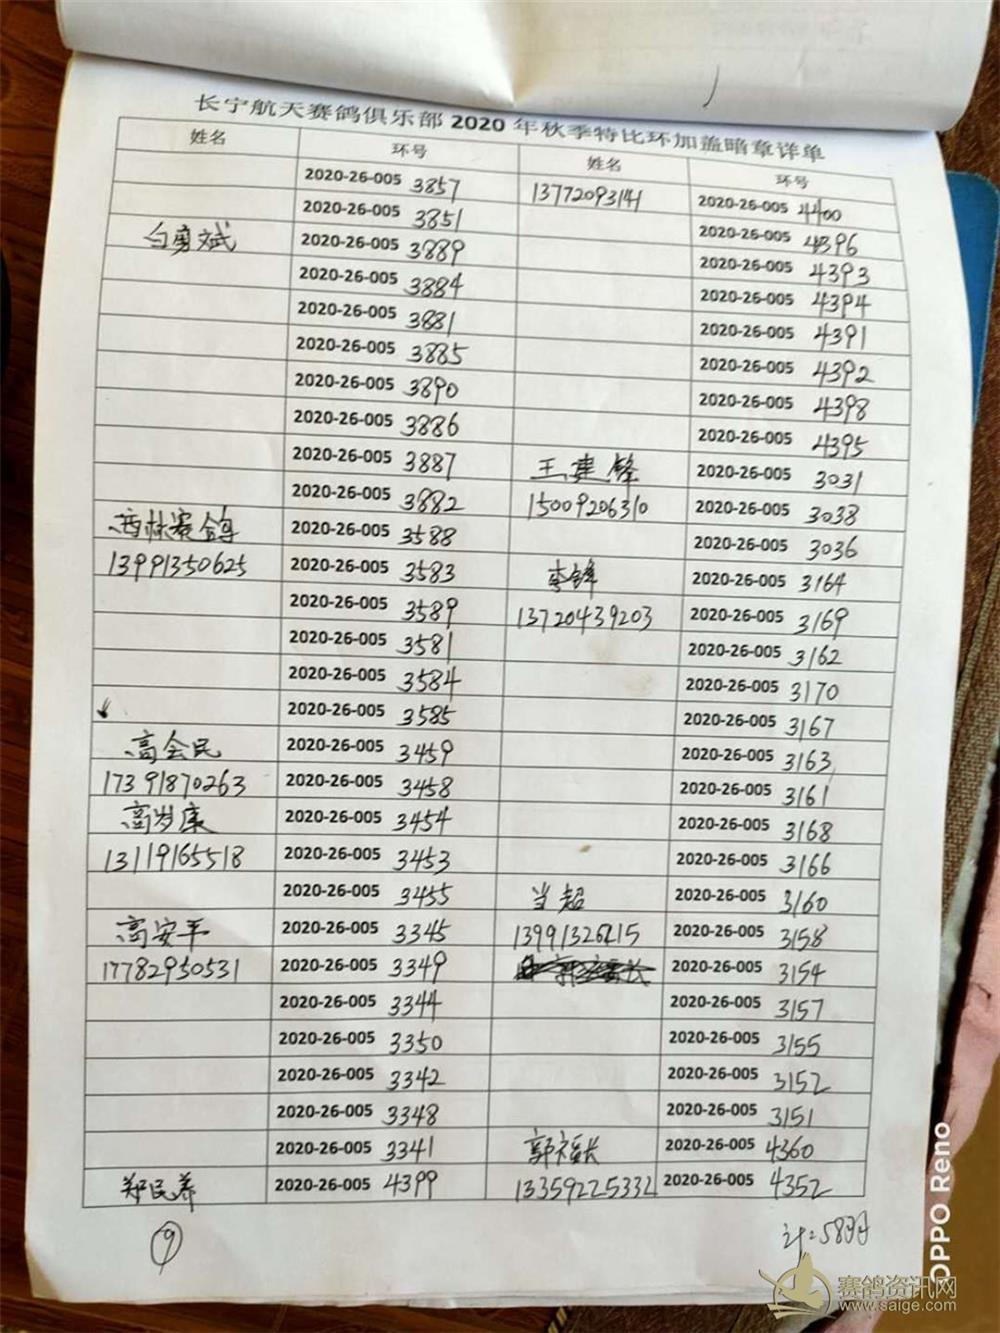 长宁航天赛鸽俱乐部2020年秋季特比环加盖暗章详单
姓名 环号 姓名 环号
2020-26-005 3857 13772093141 2020-26-005 4400
2020-26-005 3851 2020-26-005 4396
白勇斌 2020-26-005 3889 2020-26-005 4393
2020-26-005 3884 2020-26-005 4394
2020-26-005 3881 2020-26-005 4391
2020-26-005 3885 2020-26-005 4392
2020-26-005 3890 2020-26-005 4398
2020-26-005 3886 2020-26-005 4395
2020-26-005 3887 王建锋 2020-26-005 3031
2020-26-005 3882 15009206310 2020-26-005 3038
西林赛鸽 2020-26-005 3588 2020-26-005 3036
13991350625 2020-26-005 3583 李锋 2020-26-005 3164
2020-26-005 3589 13720439203 2020-26-005 3169
2020-26-005 3581 2020-26-005 3162
2020-26-005 3584 2020-26-005 3170
2020-26-005 3585 2020-26-005 3167
高会民 2020-26-005 3459 2020-26-005 3163
17391870263 2020-26-005 3458 2020-26-005 3161
高岁康 2020-26-005 3454 2020-26-005 3168
13119165518 2020-26-005 3453 2020-26-005 3166
2020-26-005 3455 当超 2020-26-005 3160
高安平 2020-26-005 3345 2020-26-005 3158
17782950531 2020-26-005 3349 2020-26-005 3154
2020-26-005 3344 2020-26-005 3157
2020-26-005 3350 2020-26-005 3155
2020-26-005 3342 2020-26-005 3152
2020-26-005 3348 2020-26-005 3151
2020-26-005 3341 郭福长 2020-26-005 4360
郑民养 2020-26-005 4399 13359225332 2020-26-005 4352
9
计:58羽
OPPO Reno
赛鸽资讯网
www.saige.com